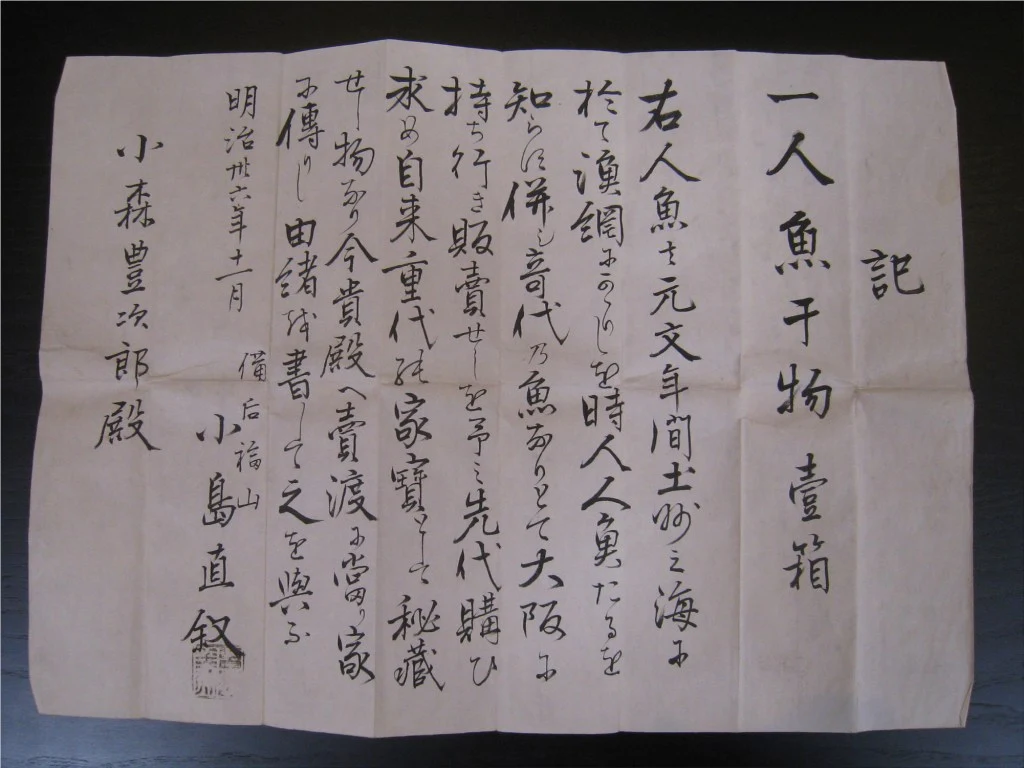 記
一人魚干物壹箱
右人魚ハ元文年間土州之海に
於て漁網にかゝりしを時人人魚たるを
知らず併し奇代乃魚なりとて大阪に
持ち行き販賣せしを予之先代購ひ
求め自来重代の家寶として秘藏
せし物なり今貴殿へ賣渡に當り家
に傳りし由緒を書して之を與ふ
明治卅六年十一月
備后福山
小島直叙
小森豊次郎殿